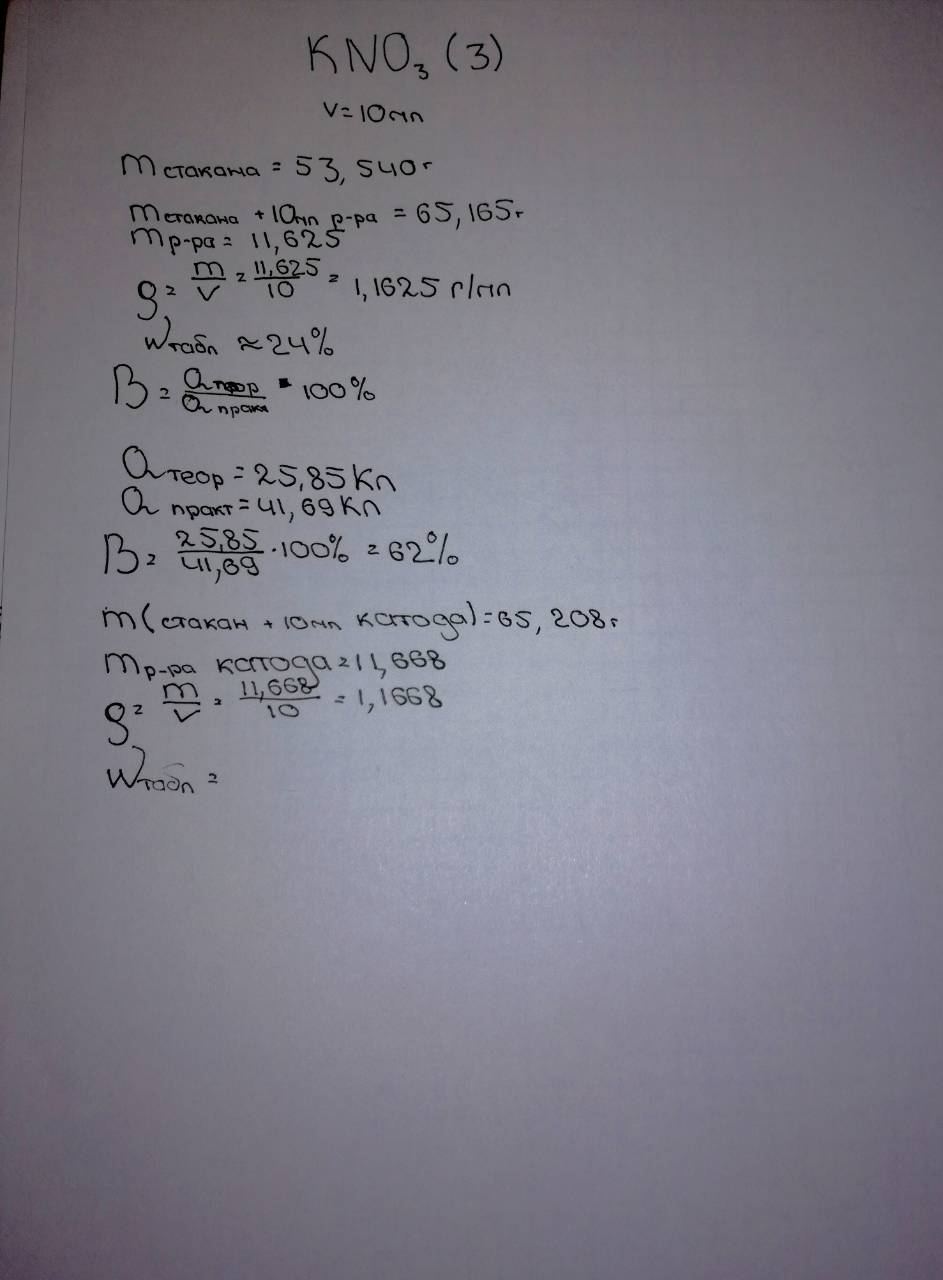 KNO₃ (3)
V = 10 мл
m стакана = 53,540 г
m стакана + 10 мл р-ра = 65,165 г
m р-ра = 11,625
ρ = m/V = 11,625/10 = 1,1625 г/мл
W табл ≈ 24%
B = Q теор/Q практ · 100%
Q теор = 25,85 Кл
Q практ = 41,69 Кл
B = 25,85/41,69 · 100% = 62%
m (стакан + 10 мл католода) = 65,208 г
m р-ра католода = 11,668
ρ = m/V = 11,668/10 = 1,1668
W табл =